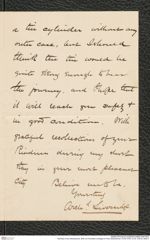 a tin cylinder without any
outer case, but I should
think the tin would be
quite strong enough to bear
the journey, and I hope that
it will reach you safely &
in good condition. With
grateful recollections of your
kindness during my short
stay in your most pleasant
City. Believe me to be,
Yours truly